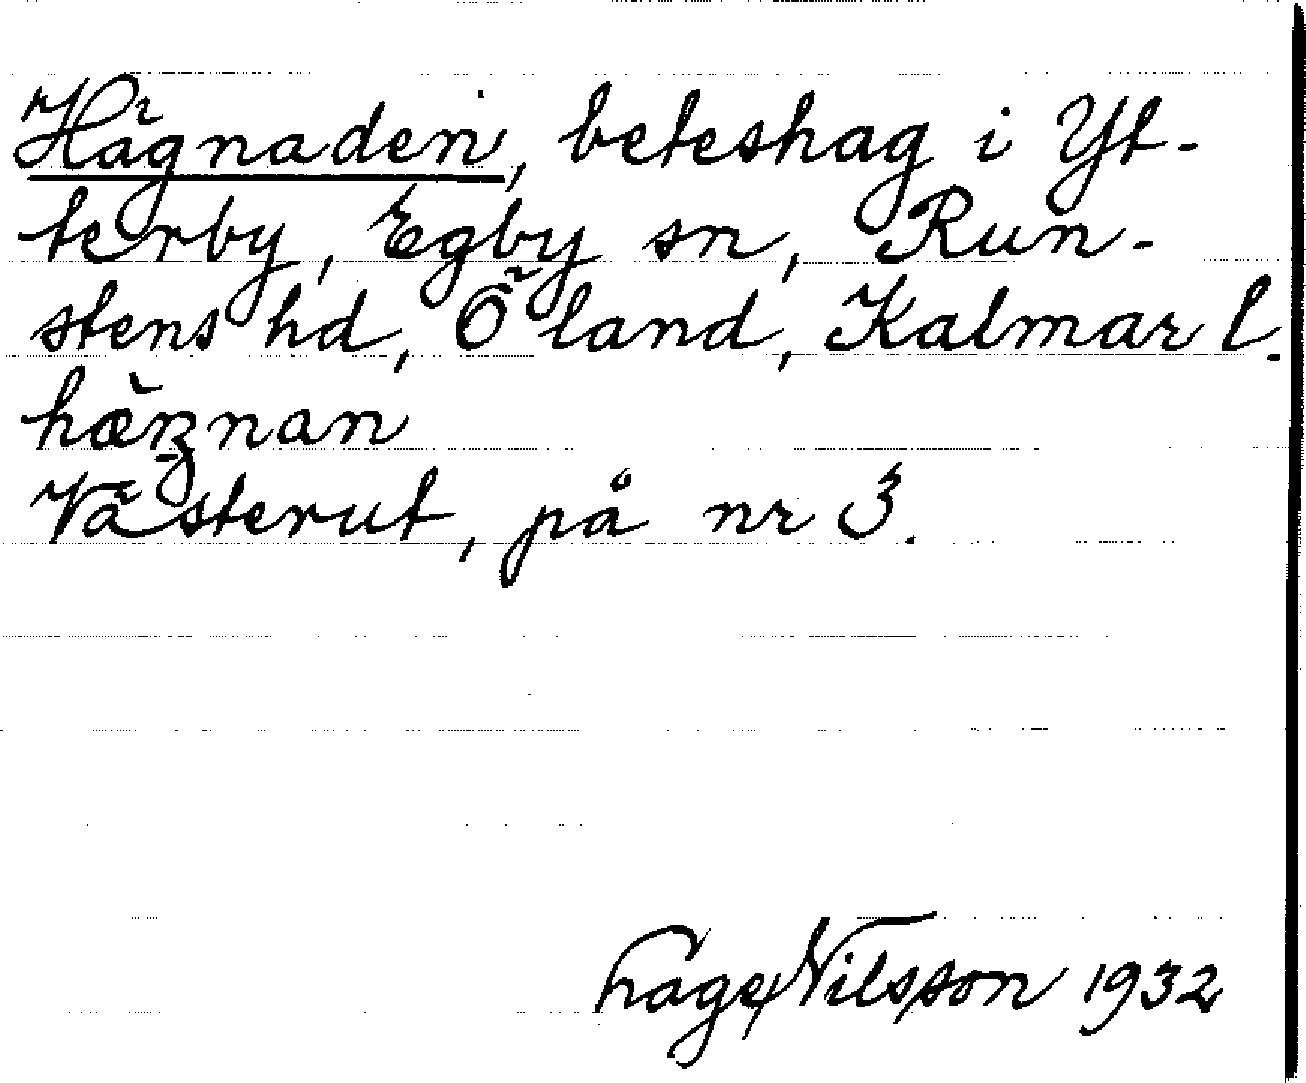 Hägnaden, beteshag i Yt-
terby, Egby sn, Run-
stens hd, Öland, Kalmar l.
hæ̀ŋnan
Västerut, på nr 3.
Hage Nilsson 1932